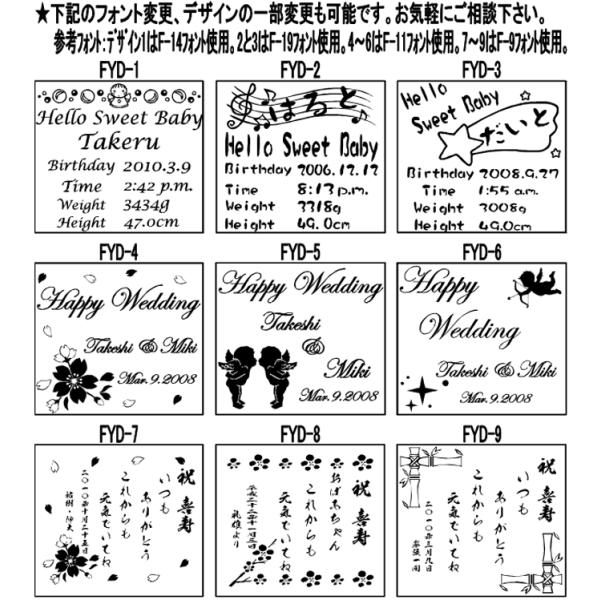 ★下記のフォント変更、デザインの一部変更も可能です。お気軽にご相談下さい。
参考ﾌｫﾝﾄ･ﾃﾞｻﾞｲﾝ1はF-14ﾌｫﾝﾄ使用。2と3はF-19ﾌｫﾝﾄ使用。4～6はF-11ﾌｫﾝﾄ使用。7～9はF-9ﾌｫﾝﾄ使用。
FYD-1
Hello Sweet Baby
Takeru
Birthday 2010.3.9
Time 2:42 p.m.
Weight 3434g
Height 47.0cm
FYD-2
はると
Hello Sweet Baby
Birthday 2006.12.12
Time 8:13 p.m.
Weight 3318g
Height 49.0cm
FYD-3
Hello
Sweet Baby
だいと
Birthday 2008.9.27
Time 1:55 a.m.
Weight 3008g
Height 49.0cm
FYD-4
Happy Wedding
Takeshi & Miki
Mar.9.2008
FYD-5
Happy Wedding
Takeshi
&
Miki
Mar.9.2008
FYD-6
Happy
Wedding
Takeshi & Miki
Mar.9.2008
FYD-7
祝 喜寿
いつも
ありがとう
これからも
元気でいてね
二〇一〇年十月二十五日
FYD-8
祝 喜寿
おばあちゃん
これからも
元気でいてね
平成二十二年十一月三日
礼雄より
FYD-9
祝 喜寿
いつも
ありがとう
これからも
元気でいてね
二〇一〇年三月九日